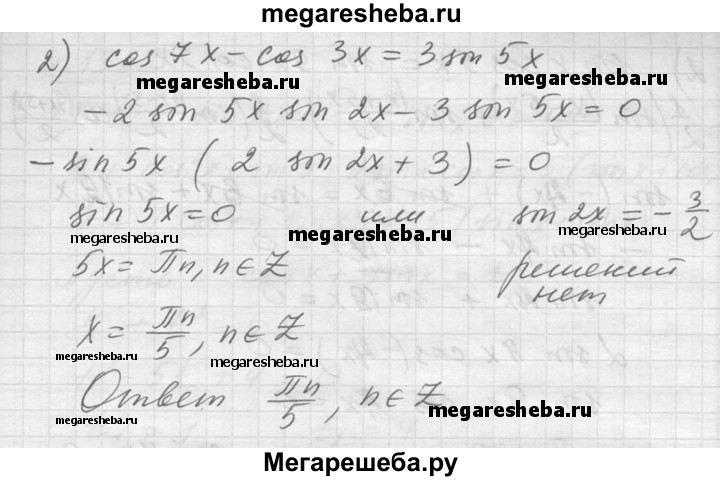 megaresheba.ru
2) cos 7x - cos 3x = 3 sin 5x
megaresheba.ru megaresheba.ru
-2 sin 5x sin 2x - 3 sin 5x = 0
- sin 5x ( 2 sin 2x + 3 ) = 0
sin 5x = 0 или sin 2x = - 3/2
megaresheba.ru megaresheba.ru megaresheba.ru
5x = Πn, n ∈ Z решений
нет
x = Πn/5, n ∈ Z
megaresheba.ru megaresheba.ru
Ответ Πn/5, n ∈ Z
megaresheba.ru megaresheba.ru
Мегарешеба.ру